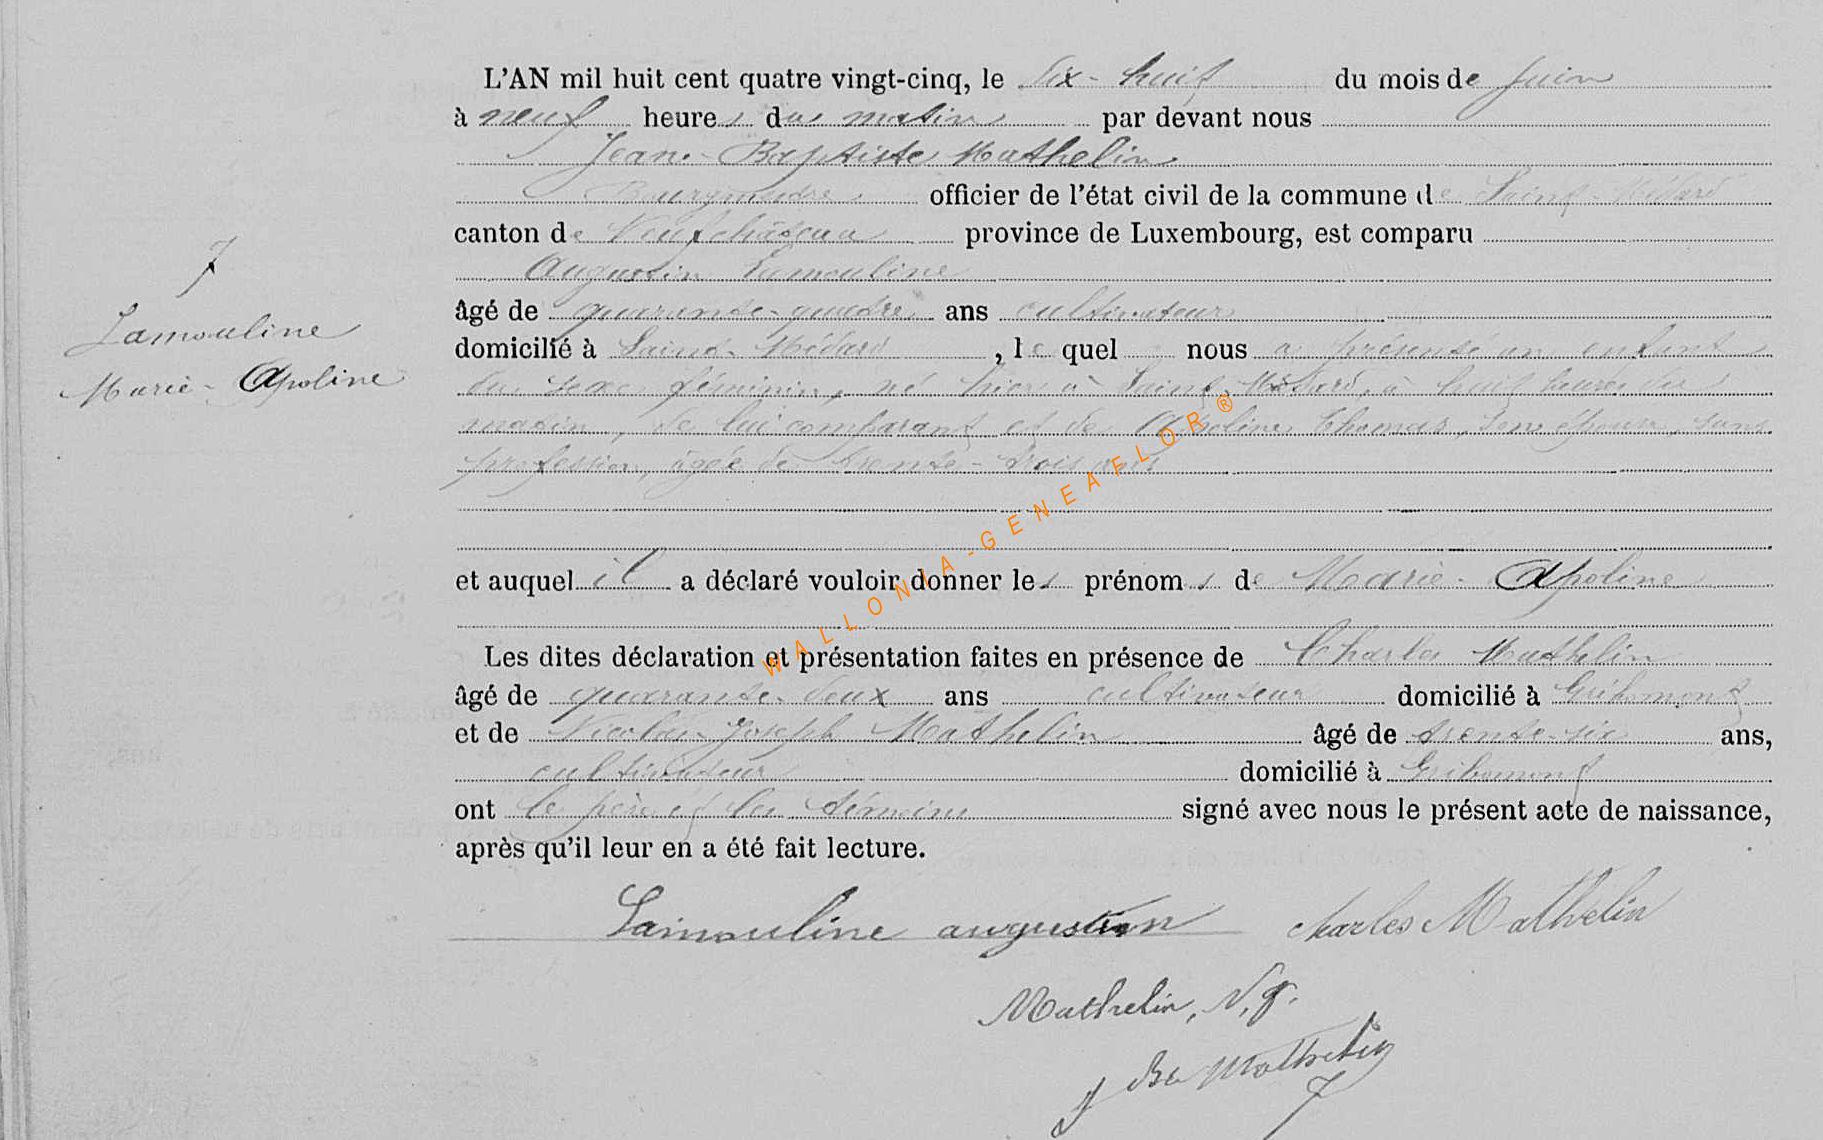 L'AN mil huit cent quatre vingt-cinq, le dix-huit du mois de Juin
à neuf heures du matin par devant nous
Jean-Baptiste Mathelin
Bourgmestre officier de l'état civil de la commune de Saint-Médard
canton de Neufchâteau province de Luxembourg, est comparu
Augustin Lamouline
7
âgé de quarante-quatre ans cultivateur
Lamouline
domicilié à Saint-Médard, lequel nous a présenté un enfant
Marie-Apoline
du sexe féminin, né hier à Saint-Médard, à huit heures du
matin, de lui comparant et de Apoline Thomas, son épouse, sans
profession, âgée de trente-trois ans
et auquel il a déclaré vouloir donner les prénoms de Marie-Apoline
Les dites déclaration et présentation faites en présence de Charles Mathelin
âgé de quarante-deux ans cultivateur domicilié à Gribomont
et de Nicolas-Joseph Mathelin âgé de trente-six ans,
cultivateur domicilié à Gribomont
ont le père et les témoins signé avec nous le présent acte de naissance,
après qu'il leur en a été fait lecture.
Lamouline augustin charles Mathelin
Mathelin, N. J.
J Bte Mathelin
WALLONIA-GENEAFLOR ®